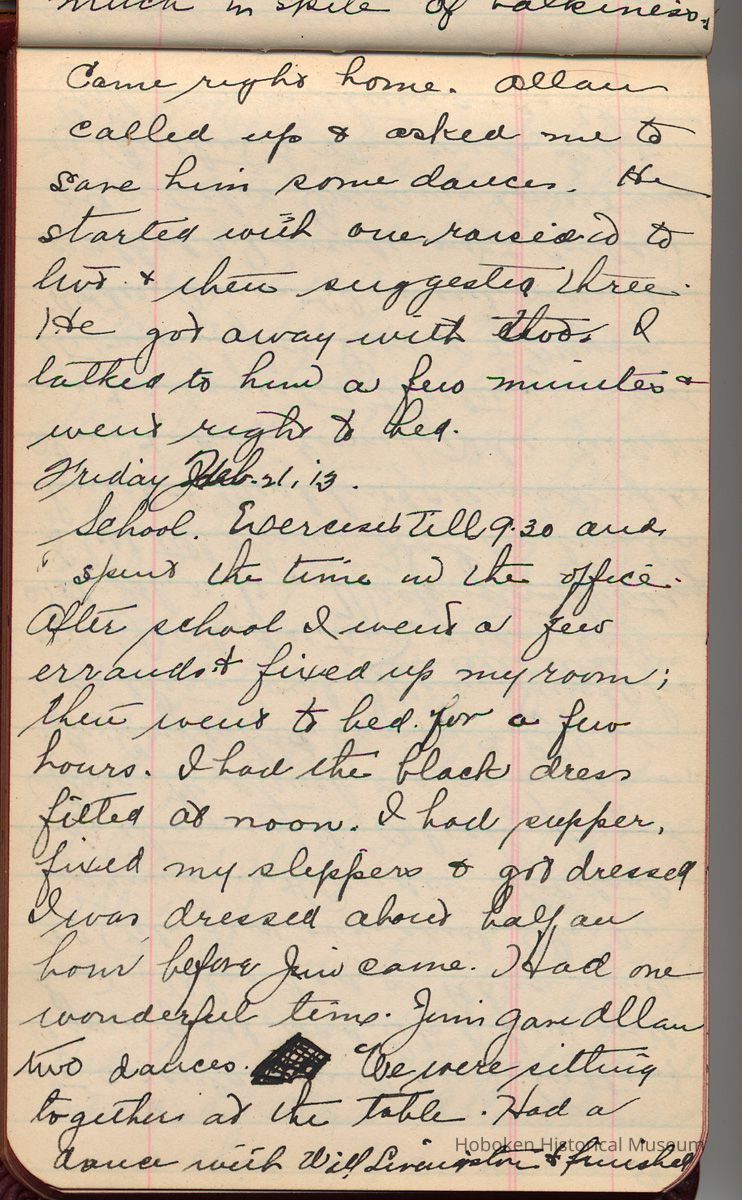 much in spite of balkiness.
Came right home. Allan
called up & asked me to
save him some dances. He
started with one, raised it to
two & then suggested three.
He got away with two. I
talked to him a few minutes &
went right to bed.
Friday Feb. 21, 13.
School. Exercises till 9.30 and
spent the time in the office.
After school I went a few
errands & fixed up my room;
then went to bed for a few
hours. I had the black dress
fitted at noon. I had supper,
fixed my slippers & got dressed
I was dressed about half an
hour before Jim came. Had one
wonderful time. Jim gave Allan
two dances. We were sitting
together at the table. Had a
dance with Will Livingston & finished
Hoboken Historical Museum